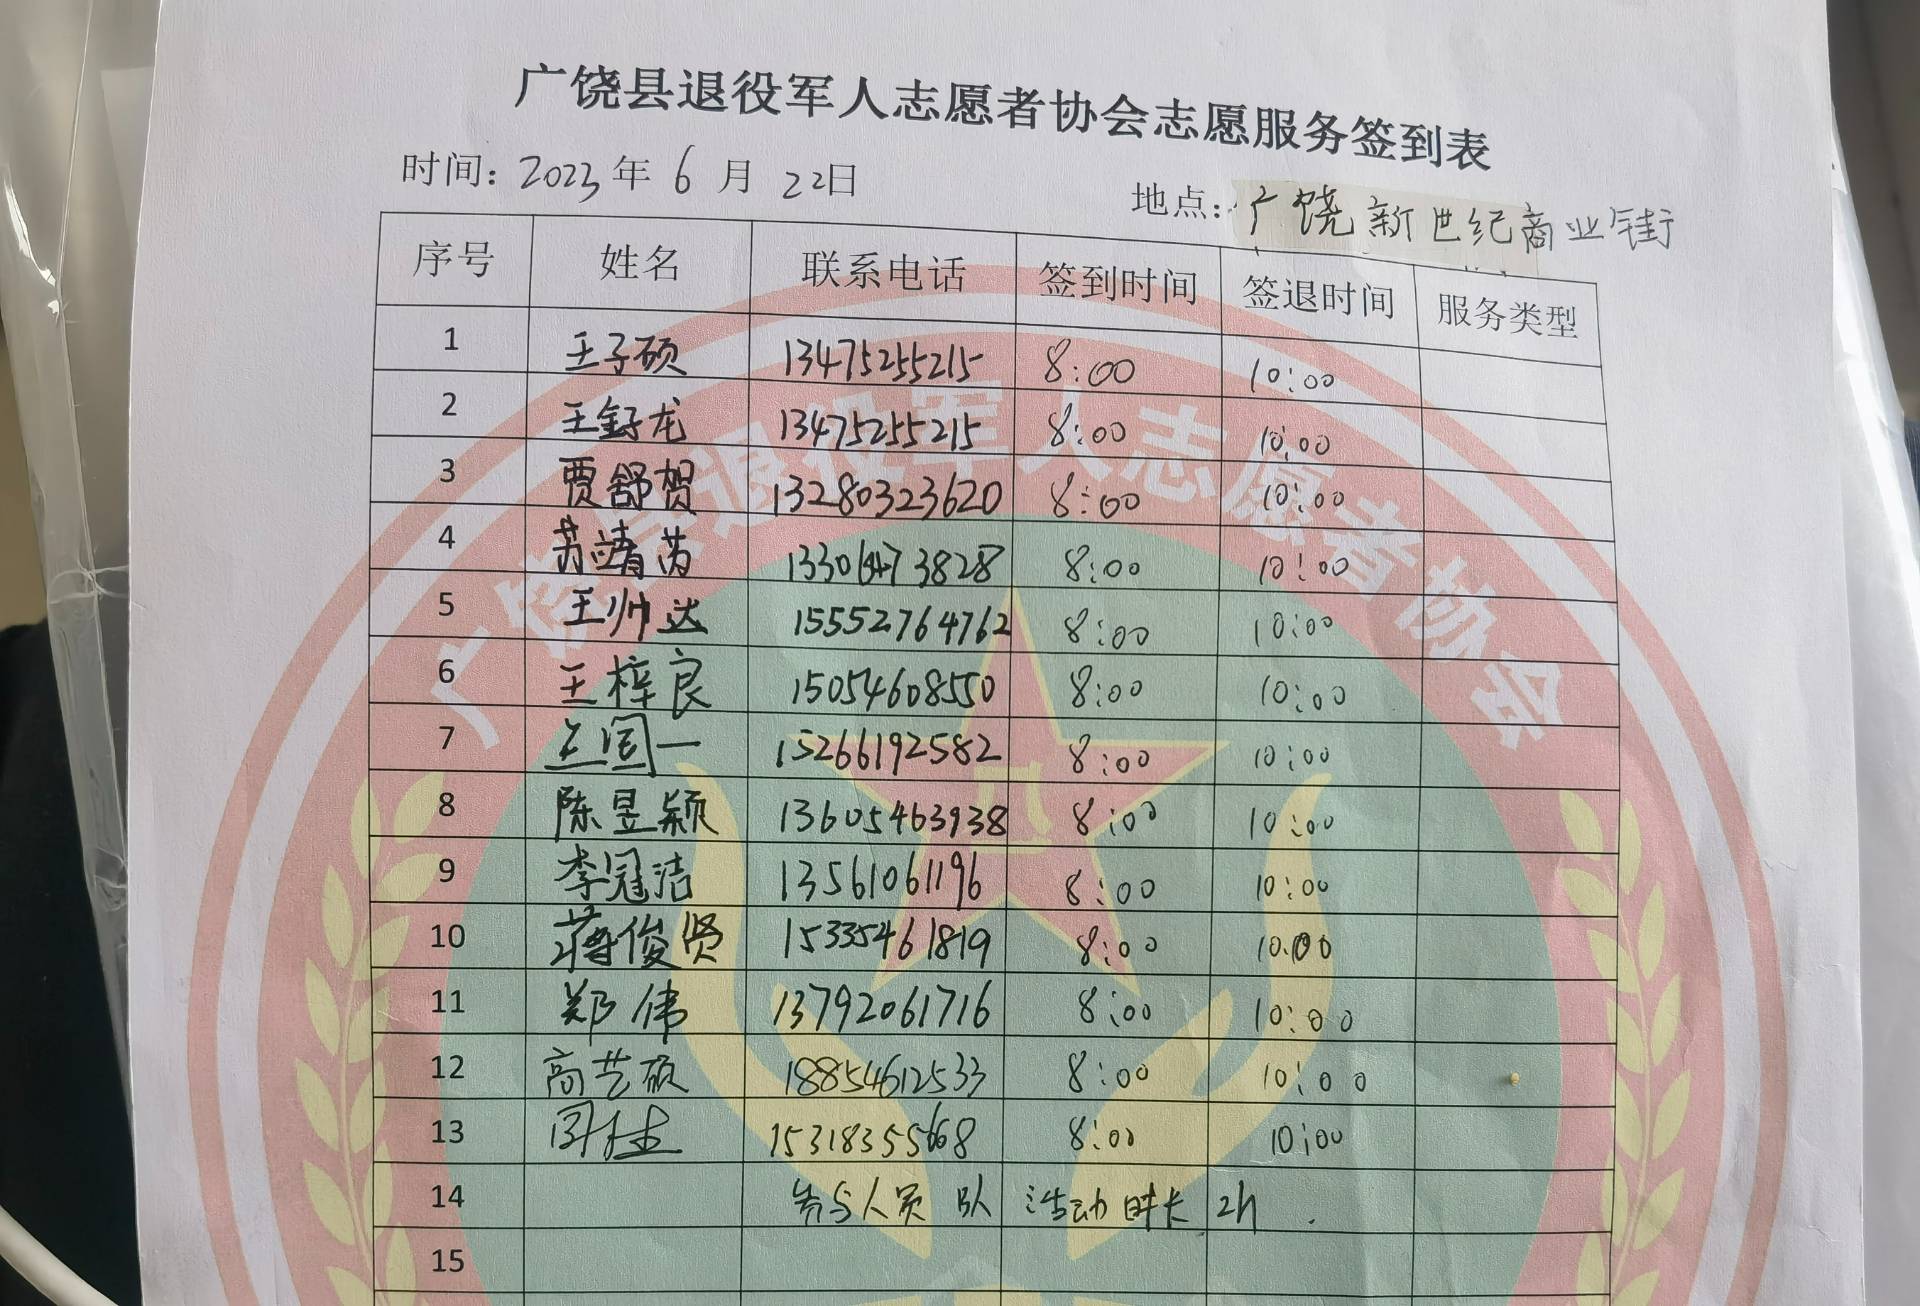 广饶县退役军人志愿者协会志愿服务签到表
时间: 2023 年 6 月 22日 地点: 广饶新世纪商业街
序号 姓名 联系电话 签到时间 签退时间 服务类型
1 王子硕 13475255215 8:00 10:00
2 王钰龙 13475255215 8:00 10:00
3 贾舒贺 13280323620 8:00 10:00
4 苏靖芮 13306473828 8:00 10:00
5 王帅达 15552764762 8:00 10:00
6 王梓良 15054608550 8:00 10:00
7 王国一 15266192582 8:00 10:00
8 陈昱颖 13605463938 8:00 10:00
9 李冠洁 13561061196 8:00 10:00
10 蒋俊贤 15335461819 8:00 10:00
11 郑伟 13792061716 8:00 10:00
12 高艺硕 18854612533 8:00 10:00
13 15318355668 8:00 10:00
14 参与人员 活动时长 2h.
15
广饶县退役军人志愿者协会